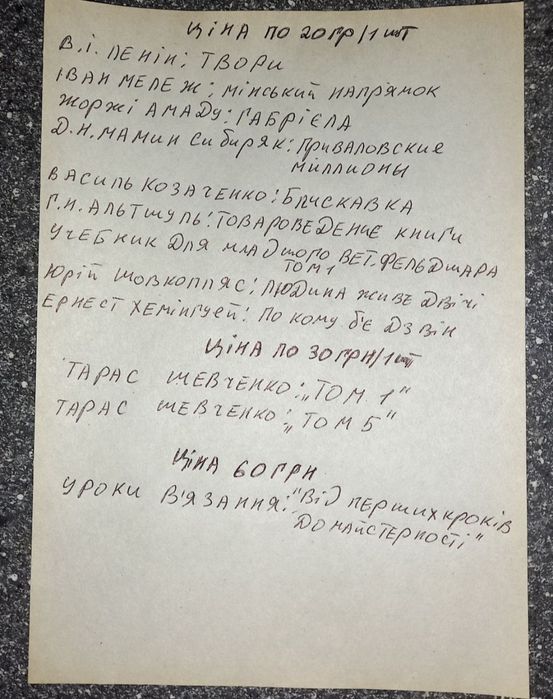 ЦІНА ПО 20ГР/1 шТ
В.І. ЛЕНІН: ТВОРИ
ІВАН МЕЛЕЖ: МІНСЬКИЙ НАПРЯМОК
ЖОРЖІ АМАДУ: ГАБРІЄЛА
Д.Н. МАМИН СИБИРЯК: ПРИВАЛОВСКИЕ
МИЛЛИОНЫ
ВАСИЛЬ КОЗАЧЕНКО: БЛИСКАВКА
Г.Н. АЛЬТШУЛЬ: ТОВАРОВЕДЕНИЕ КНИГИ
УЧЕБНИК ДЛЯ МЛАДШОГО ВЕТ. ФЕЛЬДШАРА
ТОМ 1
ЮРІЙ ШОВКОПЛЯС: ЛЮДИНА ЖИВЕ ДВІЧІ
ЕРНЕСТ ХЕМІНГУЕЙ: ПО КОМУ Б'Є ДЗВІН
ЦІНА ПО 30ГРН/1 шТ
ТАРАС ШЕВЧЕНКО: „ТОМ 1"
ТАРАС ШЕВЧЕНКО: „ТОМ 5"
ЦІНА 60ГРН
УРОКИ В'ЯЗАННЯ: "ВІД ПЕРШИХ КРОКІВ
ДО МАЙСТЕРНОСТІ"